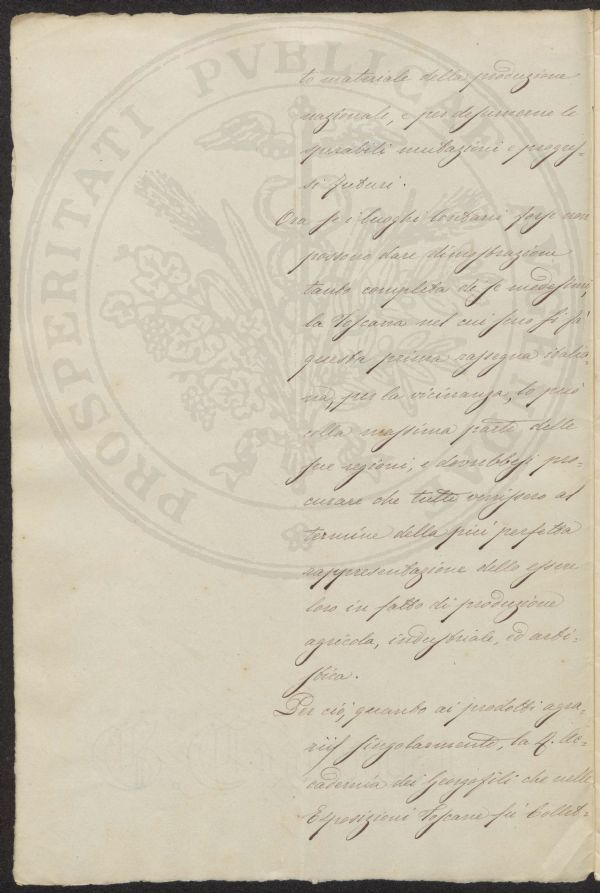 to materiale della produzione
nazionale, e per desumerne le
sperabili mutazioni e progres-
si futuri.
Ora se i luoghi lontani forse non
possono dare dimostrazione
tanto completa di se medesimi,
la Toscana nel cui seno si fà
questa prima rassegna italia-
na, per la vicinanza, lo può
colla massima parte delle
sue regioni, e dovrebbesi pro-
curare che tutte venissero al
termine della più perfetta
rappresentazione dello essere
loro in fatto di produzione
agricola, industriale, ed arti-
stica.
Per ciò, quanto ai prodotti agra-
rii singolarmente, la R. Ac-
cademia dei Georgofili che nelle
Esposizioni Toscane fù Collet-
PROSPERITATI PVBLICAE